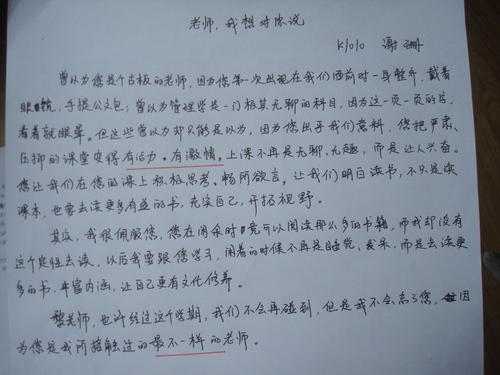 老师，我想对你说
K1010 谢珊
曾以为您是个古板的老师，因为您第一次出现在我们面前时一身整齐，戴着
眼镜，手提公文包；曾以为管理学是一门极其无聊的科目，因为这一页一页的书，
看着就眼晕。但这些曾以为却只能是以为，因为您出乎我们意料，您把严肃、
压抑的课堂变得有活力。有激情，上课不再是无聊、无趣，而是让人兴奋。
您让我们在您的课上积极思考、畅所欲言，让我们明白读书，不只是读
课本，也要去读更多有益的书，充实自己，开拓视野。
其实，我很佩服您，您在闲余时竟可以阅读那么多的书籍，而我却没有
这个定性去读，以后我要跟您学习，闲着的时候不再是睡觉，而是去读更
多的书，丰富内涵，让自己更有文化修养。
黎老师，也许经过这个学期，我们不会再碰到，但是我不会忘了您，因
为您是我所接触过的最不一样的老师。